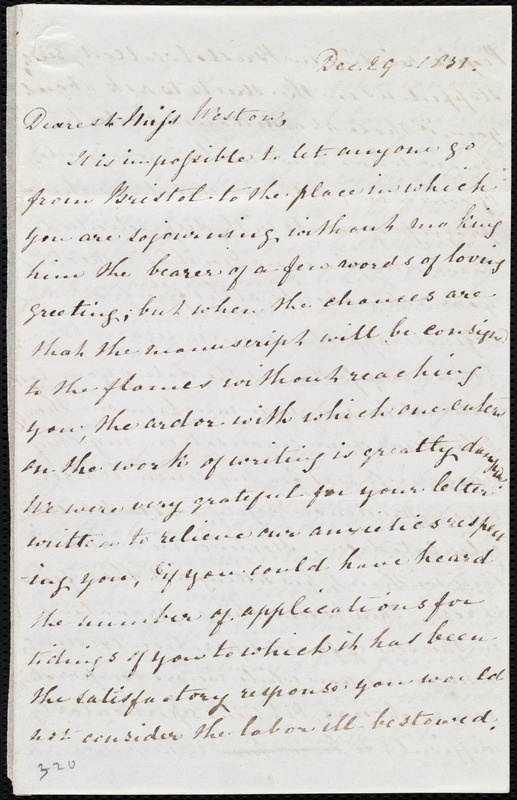 Dec. 29 - 1851.
Dearest Miss Weston,
It is impossible to let anyone go
from Bristol to the place in which
you are sojourning, without making
him the bearer of a few words of loving
greeting; but when the chances are
that the manuscript will be consign'd
to the flames without reaching
you, the ardor with which one enters
on the work of writing is greatly damped.
We were very grateful for your letter
written to relieve our anxieties respect
-ing you, & if you could have heard
the number of applications for
tidings of you to which it has been
the satisfactory response you would
not consider the labor ill bestowed.
320